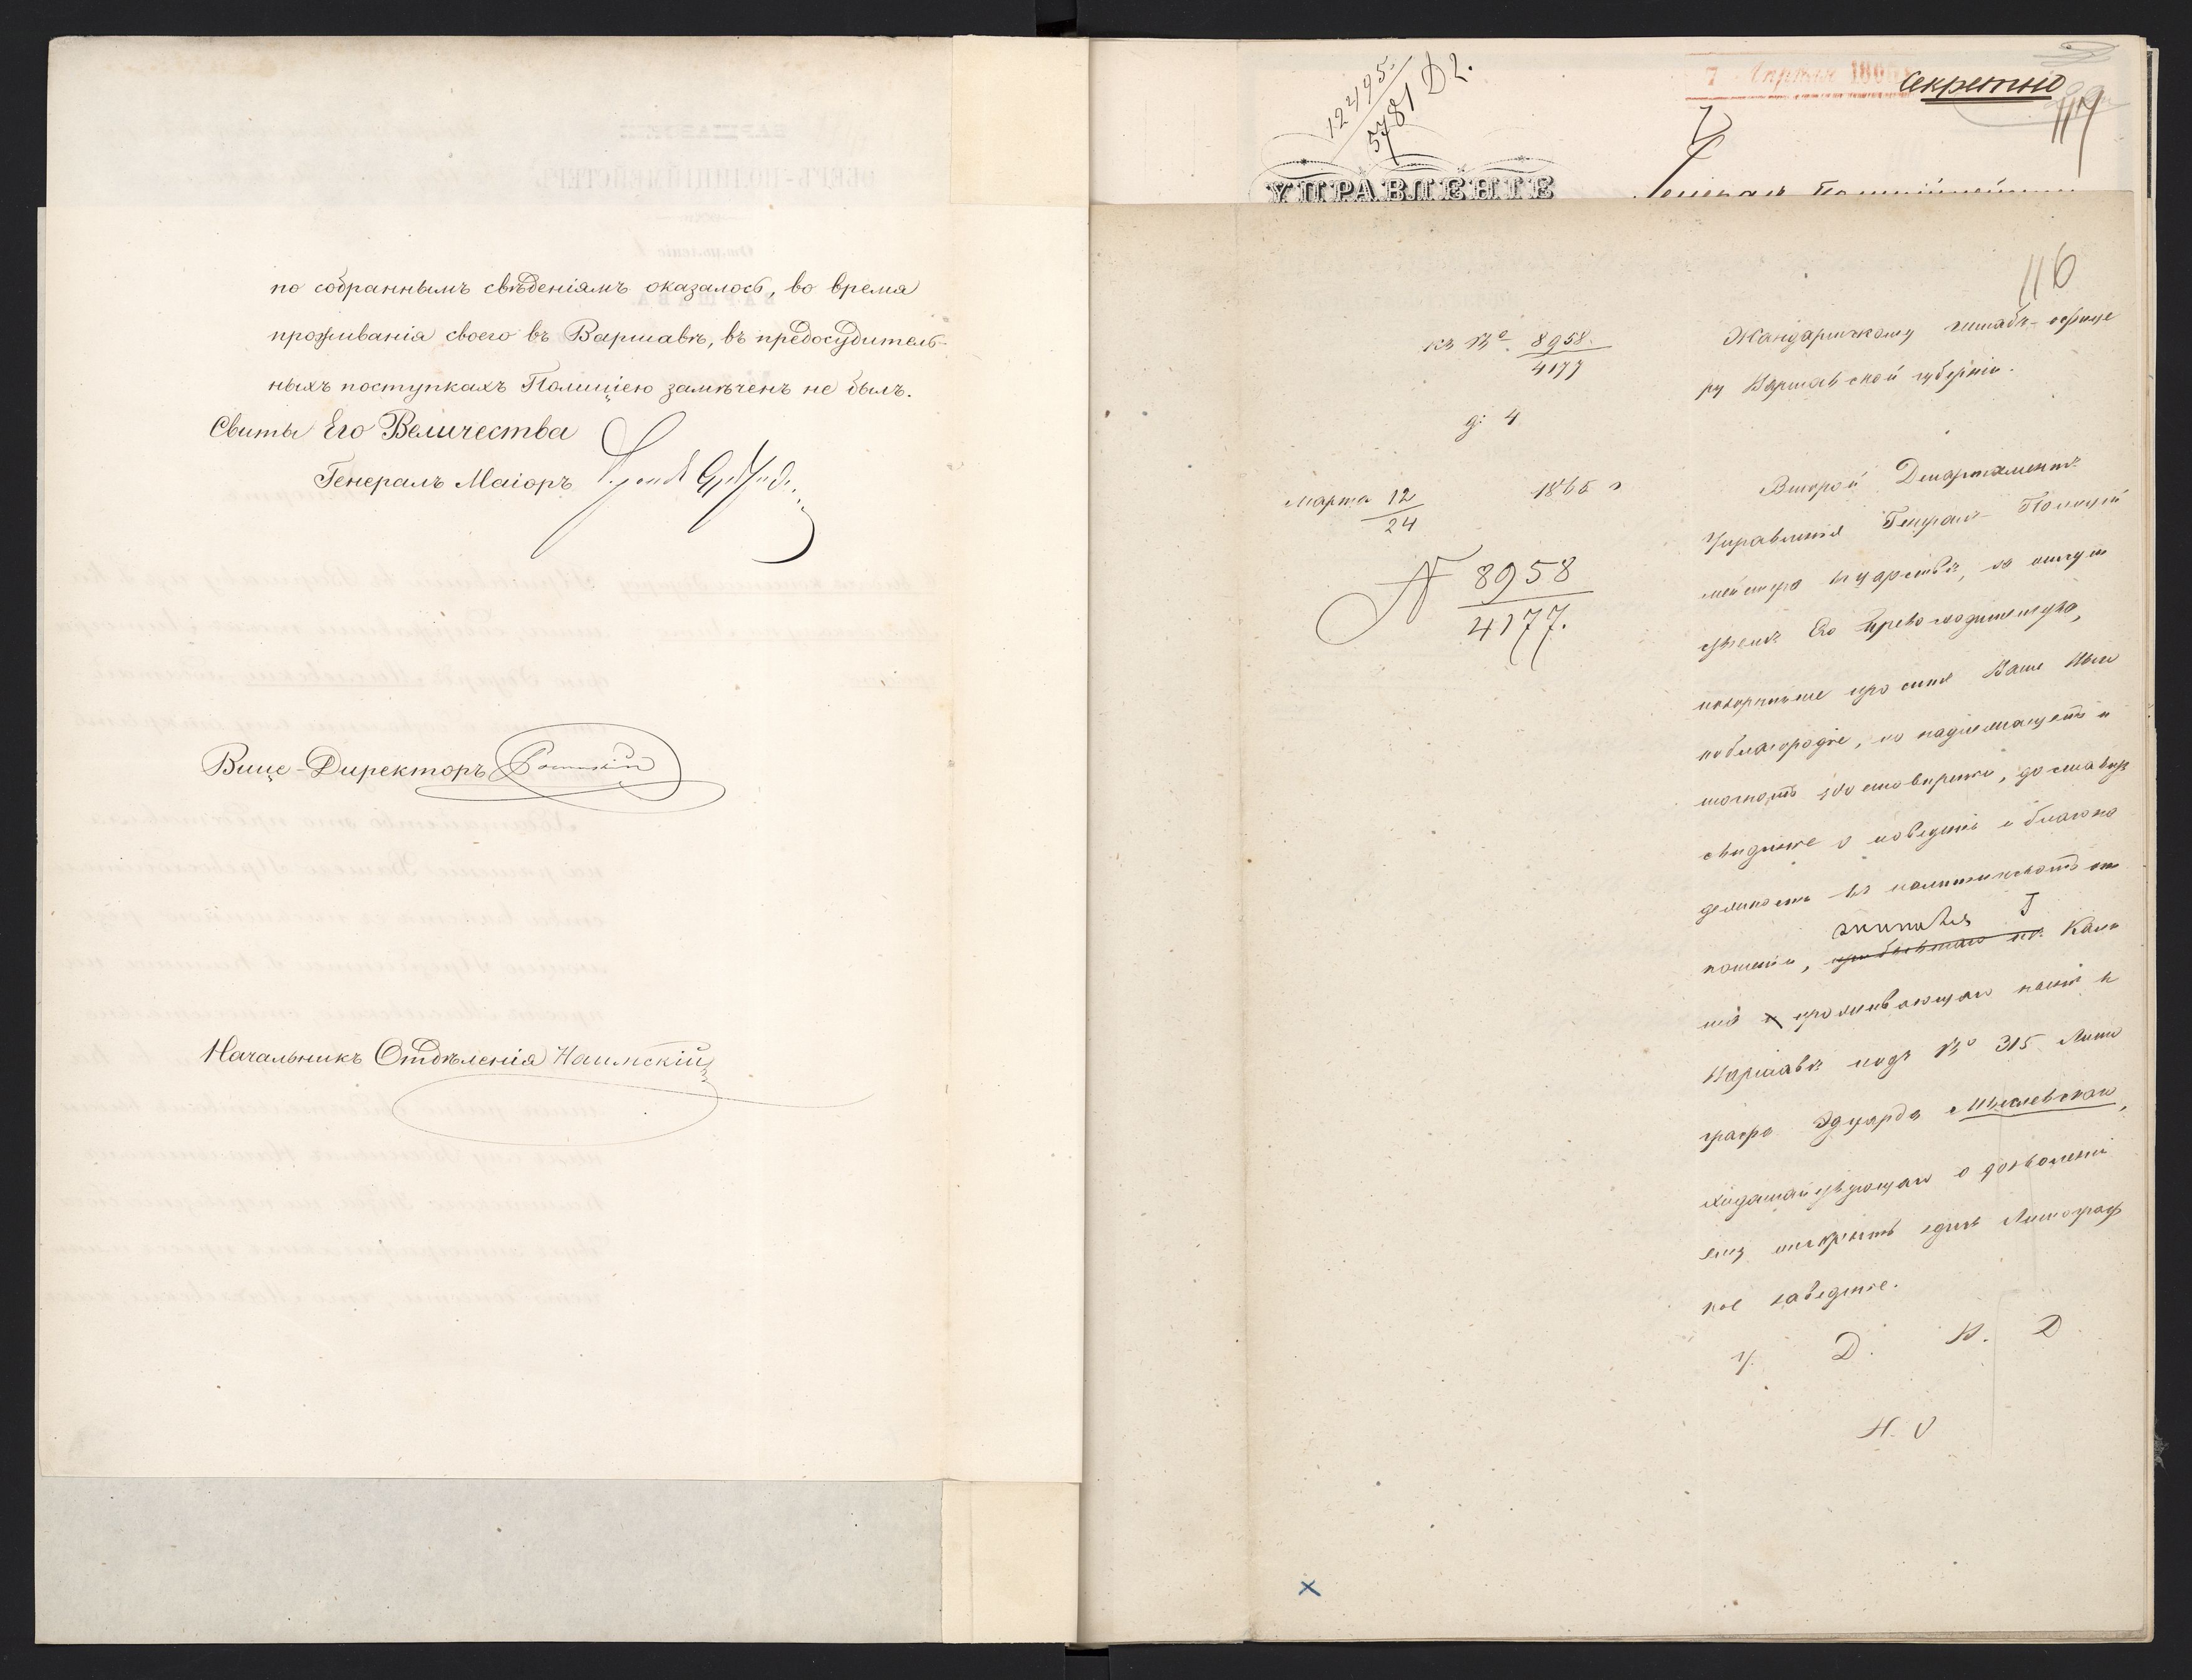 по собраннымъ свѣденіямъ оказалось, во время
проживанія своего въ Варшавѣ, въ предосудитель-
ныхъ поступкахъ Полиціею замѣченъ не былъ.
Свиты Его Величества
Генералъ Маіоръ
Вице-Директоръ
Начальникъ Отдѣленія
12495.
5781 Д2.
7 Апрѣля 186
Секретно
117
УПРАВЛЕНІЕ
116
къ № 8958.
4177
д: 4
Марта 12
24
1865 г
N 8958
4177.
Жандармскому штабъ-офице
ру Варшавской губерніи.
Второй Департаментъ
Управленія Генералъ-Полицій
мейстера въ Царствѣ, за отсут
ствіемъ Его Превосходительства,
покорнѣйше проситъ Ваше Высо
коблагородіе, по надлежащемъ и
достовѣреніи, доставить
свидѣніе о поведеніи и благона
дежности въ политическомъ от
ношеніи, жителя Г. Кали
ша проживающаго нынѣ въ
Варшавѣ подъ № 315 Лито
графа Эдуарда Мыслевскаго,
ходатайствующаго о дозволеніи
ему открыть здѣсь Литограф
ное заведеніе.
У. Д. В. Д
Н. О